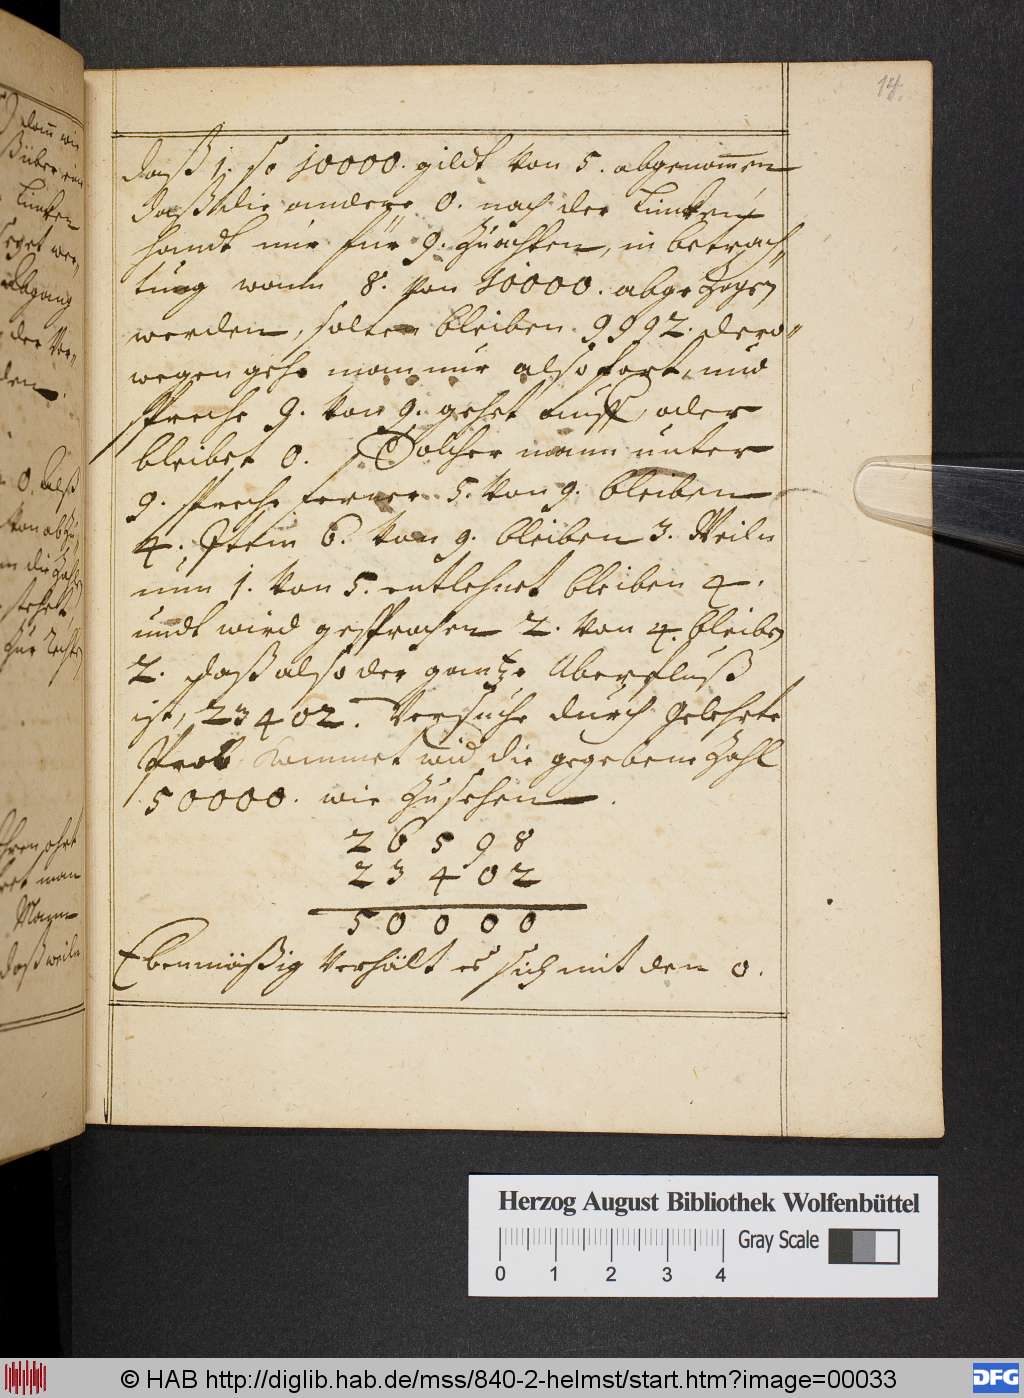 14.
daß 1. so 10000. gildt von 5. abgenom̅en
daß die andere 0. nach der Lincken
handt nur für 9. zuachten, in betrach-
tung wann 8. von 10000. abgezogen
werden, solten bleiben 9992. dero-
wegen gehe man nur also fort, und
spreche 9. von 9. gehet auff, oder
bleibet 0. Solcher unter
9. spreche ferner 5. von 9. bleiben
4. Item 6. von 9. bleiben 3. Weiln
nun 1. von 5. entlehnet bleiben 4.
undt wird gesprochen 2. von 4. bleiben
2. daß also der gantze Überfluß
ist, 23402. Versuche durch gelehrte
Prob kommet die gegebene Zahl
50000. wie zusehen.
2 6 5 9 8
2 3 4 0 2
5 0 0 0 0
Ebenmäßig verhält es sich mit den 0.
Herzog August Bibliothek Wolfenbüttel
Gray Scale
0 1 2 3 4
© HAB http://diglib.hab.de/mss/840-2-helmst/start.htm?image=00033
DFG